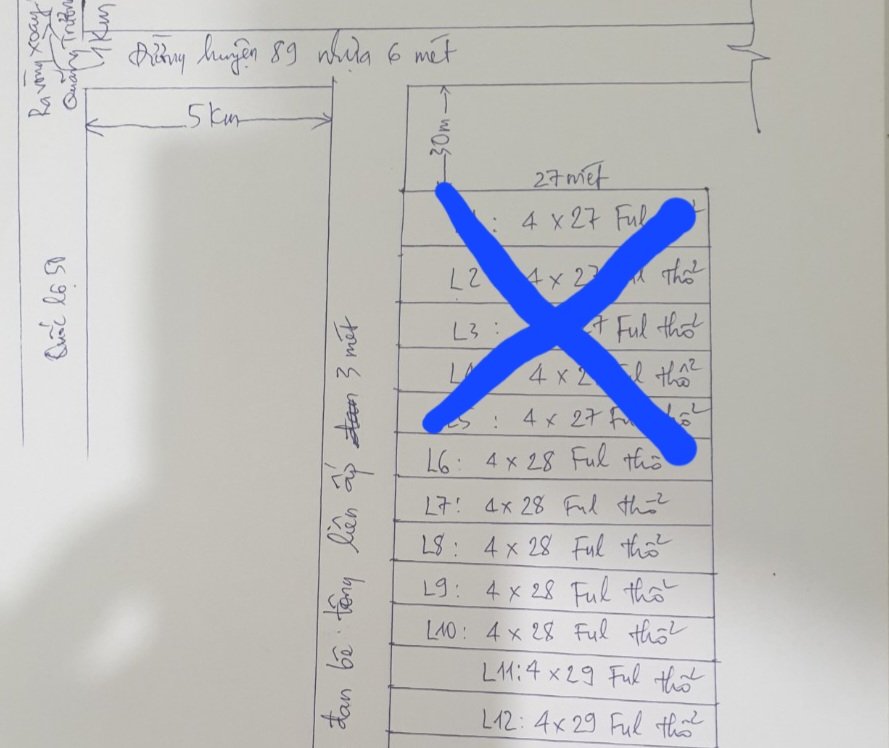 Ra vòng xoay
Quảng Trường
1 Km
Đường huyện 89 nhựa 6 mét
5 Km
30m
27 mét
Quốc lộ 50
đan bê tông liên ấp 3 mét
: 4 x 27 Ful
L2 4 x 27 thổ²
L3 : 7 Ful thổ²
L4 4 x 2 thổ²
L5 : 4 x 27 F
L6: 4 x 28 Ful thổ
L7: 4x28 Ful thổ²
L8: 4 x 28 Ful thổ²
L9: 4 x 28 Ful thổ²
L10: 4 x 28 Ful thổ²
L11: 4 x 29 Ful thổ²
L12: 4x29 Ful thổ²